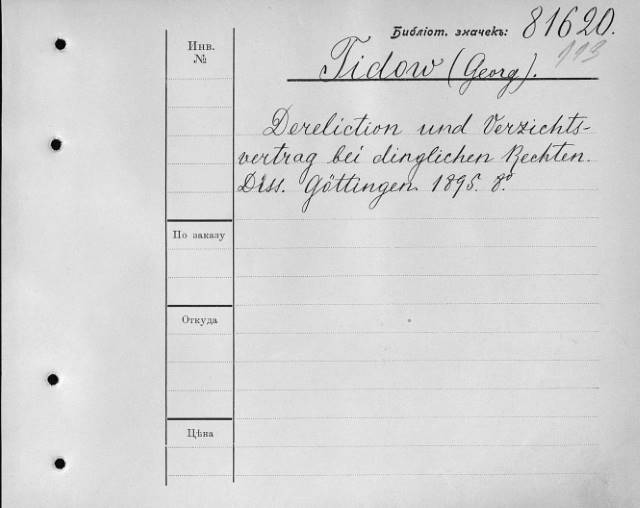 Библіот. значекъ: 81620.
113
Инв.
№
Tidow (Georg).
Dereliction und Verzichts-
vertrag bei dinglichen Rechten.
Diss. Göttingen 1895. 8º
По заказу
Откуда
Цѣна